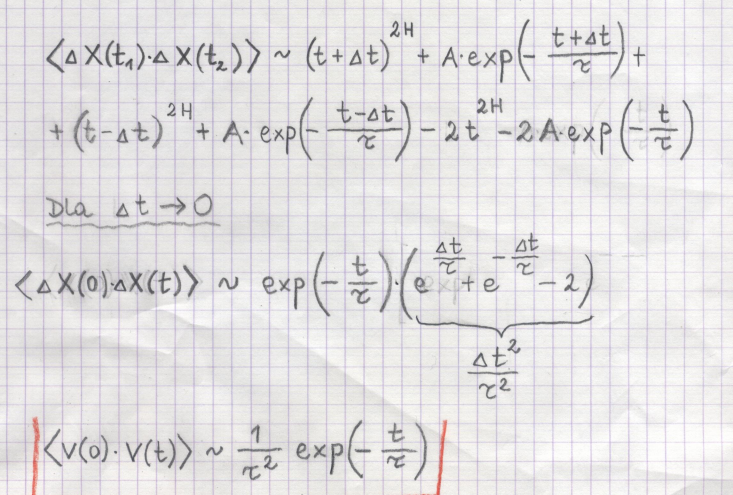 ⟨ΔX(t₁)·ΔX(t₂)⟩ ~ (t+Δt)^{2H} + A·exp(-\frac{t+Δt}{τ}) +
+ (t-Δt)^{2H} + A· exp(-\frac{t-Δt}{τ}) - 2t^{2H} - 2A·exp(-\frac{t}{τ})
Dla Δt → 0
⟨ΔX(0)·ΔX(t)⟩ ~ exp(-\frac{t}{τ})·(e^{\frac{Δt}{τ}} + e^{-\frac{Δt}{τ}} - 2)
\frac{Δt²}{τ²}
⟨V(0)·V(t)⟩ ~ \frac{1}{τ²} exp(-\frac{t}{τ})